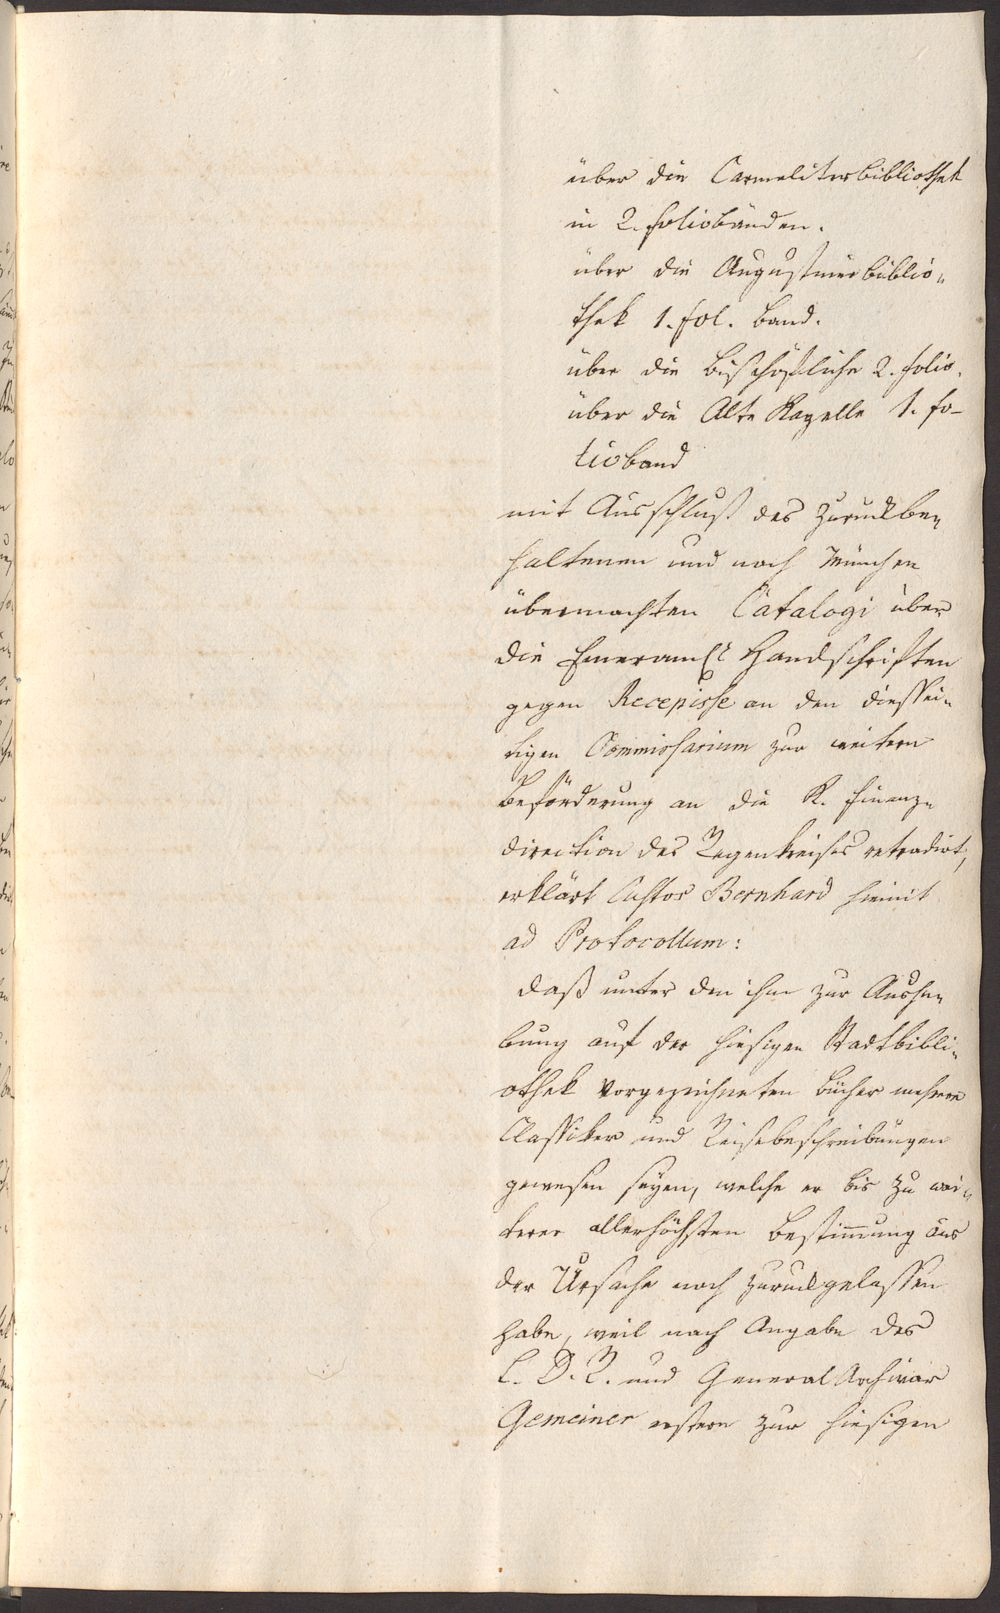 über die Carmeliterbibliothek
in 2. foliobänden.
über die Augustinerbiblio„
thek 1. fol. band.
über die bischöfliche 2. folio.
über die Alte Kapelle 1. fo-
lioband
mit Ausschluß des zurückbe„
haltenen und nach München
übermachten Catalogi über
die Emeram. Handschriften
gegen Recepisse an den diessei„
tigen Commissarium zur weitern
Beförderung an die K. Finanz„
direction des Regenkreises retradirt,
erklärt Custos Bernhard hiemit
ad Protocollum:
daß unter den ihm zur Aushe„
bung auf der hiesigen Stadtbibli„
othek vorgezeichneten bücher mehrere
Classiker und Reisebeschreibungen
gewesen seyen, welche er bis zu wei„
terer allerhöchsten bestimmung aus
der Ursache noch zurückgelassen
habe, weil nach Angabe des
L. D. R. und General Archivar
Gemeiner erstere zur hiesigen